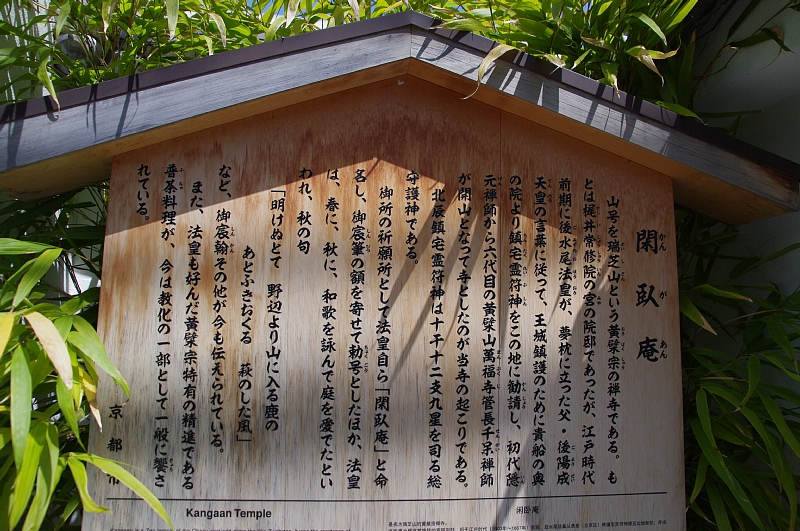 閑臥庵
かんがあん
山号を瑞芝山という黄檗宗の禅寺である。も
とは梶井常修院の宮の院邸であったが、江戸時代
前期に後水尾法皇が、夢枕に立った父・後陽成
天皇の言葉に従って、王城鎮護のために貴船の奥
の院より鎮宅霊符神をこの地に勧請し、初代隠
元禅師から六代目の黄檗山萬福寺管長千呆禅師
が開山となって寺としたのが当寺の起こりである。
北辰鎮宅霊符神は十干十二支九星を司る総
守護神である。
御所の祈願所として法皇自ら「閑臥庵」と命
名し、御宸筆の額を寄せて勅号としたほか、法皇
は、春に、秋に、和歌を詠んで庭を愛でたとい
われ、秋の句
「明けぬとて　野辺より山に入る鹿の
あとふきおくる　萩のした風」
など、御宸翰その他が今も伝えられている。
また、法皇も好んだ黄檗宗特有の精進である
普茶料理が、今は教化の一部として一般に饗さ
れている。
京都市
Kangaan Temple
闲卧庵